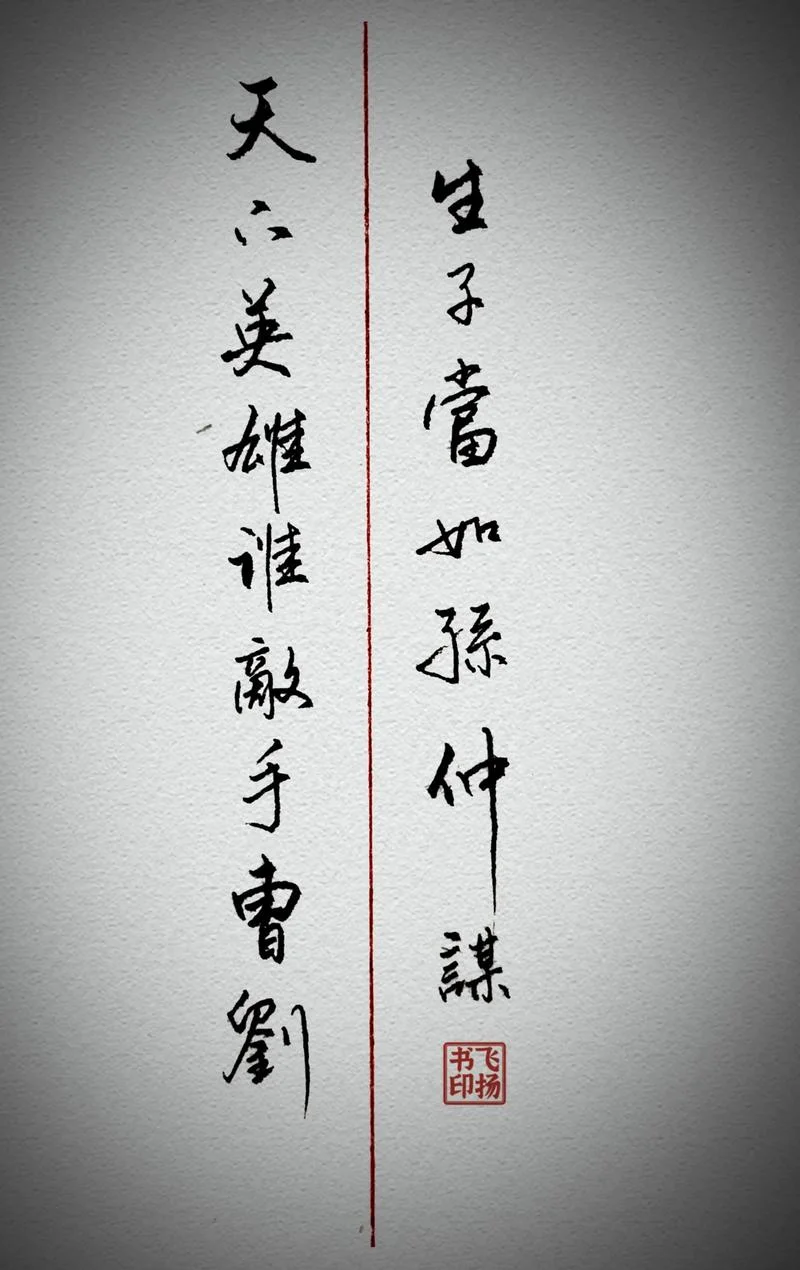 天下英雄谁敵手曹劉
生子當如孫仲謀
飞扬
书印